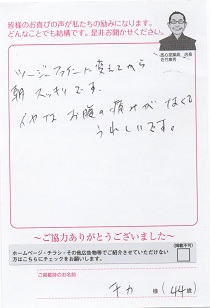 皆様のお喜びの声が私たちの励みになります。
どんなことでも結構です。是非お聞かせください。
ツージーファイブに変えてから
朝スッキリです。
イヤなお腹の痛みがなくて
うれしいです。
～ご協力ありがとうございました～
ホームページ・チラシ・その他広告物等でご紹介させていただけない
方はこちらにチェックをお願いします。
掲載不可
ご掲載時のお名前
チカ 様（44歳）